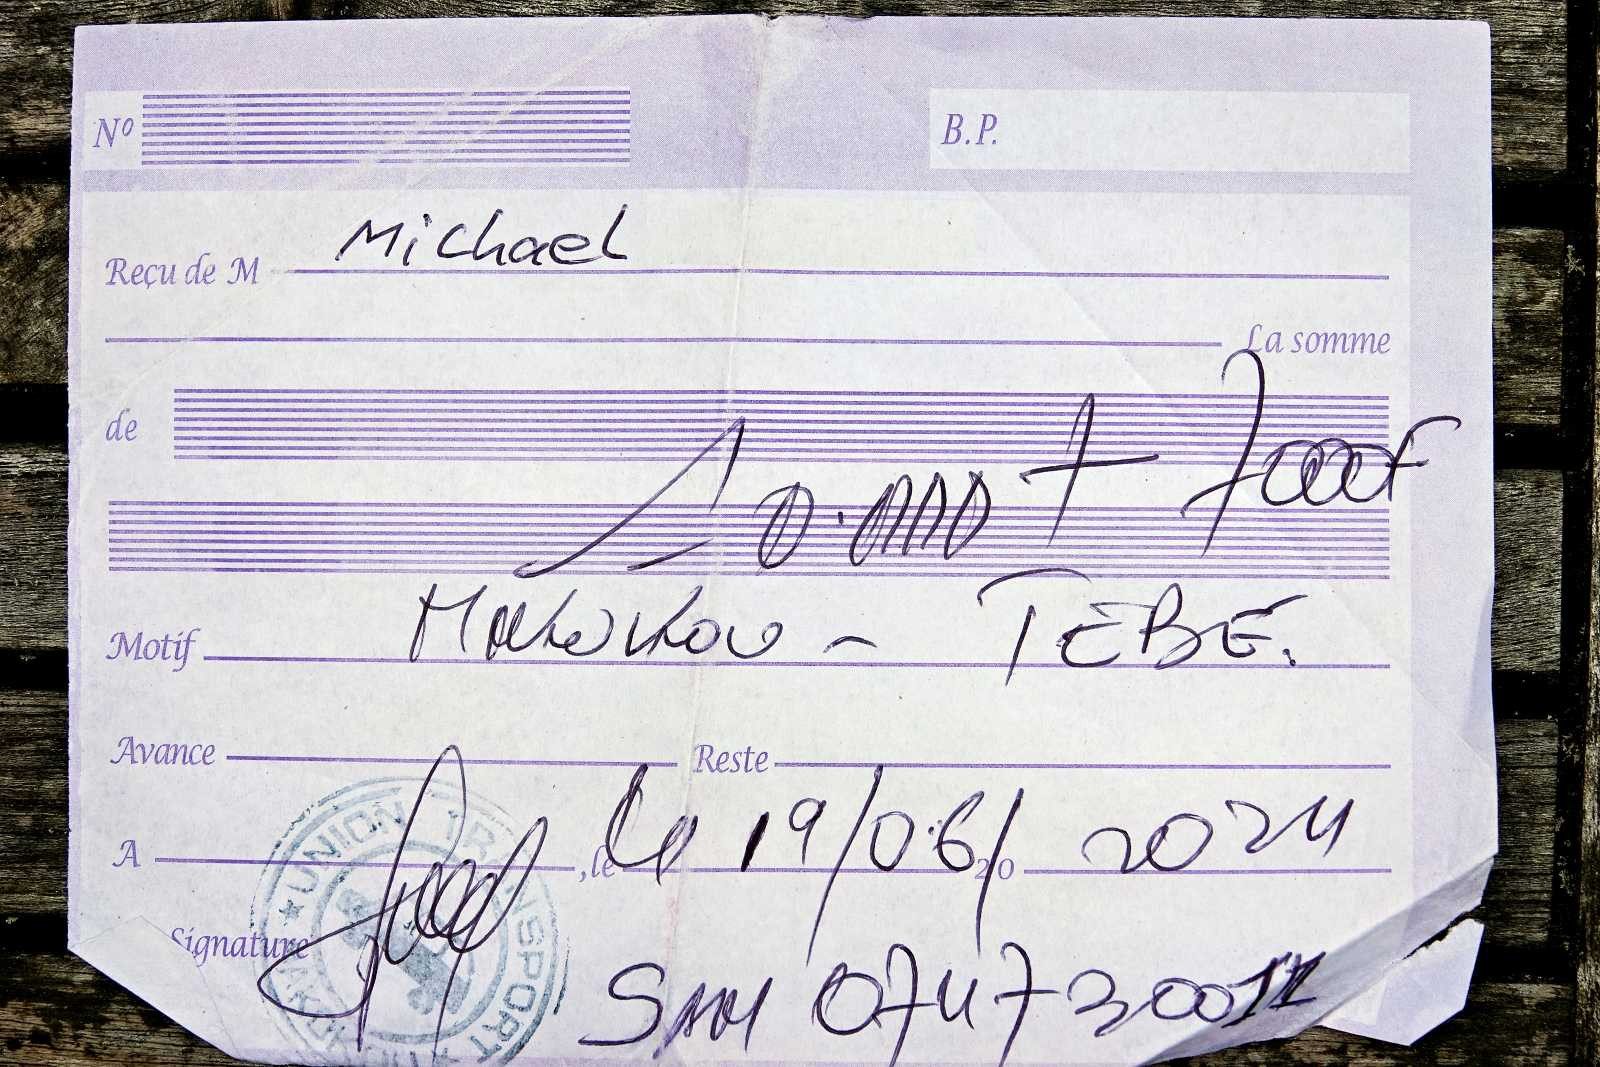 Nº B.P.
Reçu de M Michael
La somme
de 10.000 + 7000F
Motif Makokou - TEBE.
Avance Reste
A , le le 19/06/20 2024
Signature
UNION TRANSPORT MAKOKOU
SAM 074730011